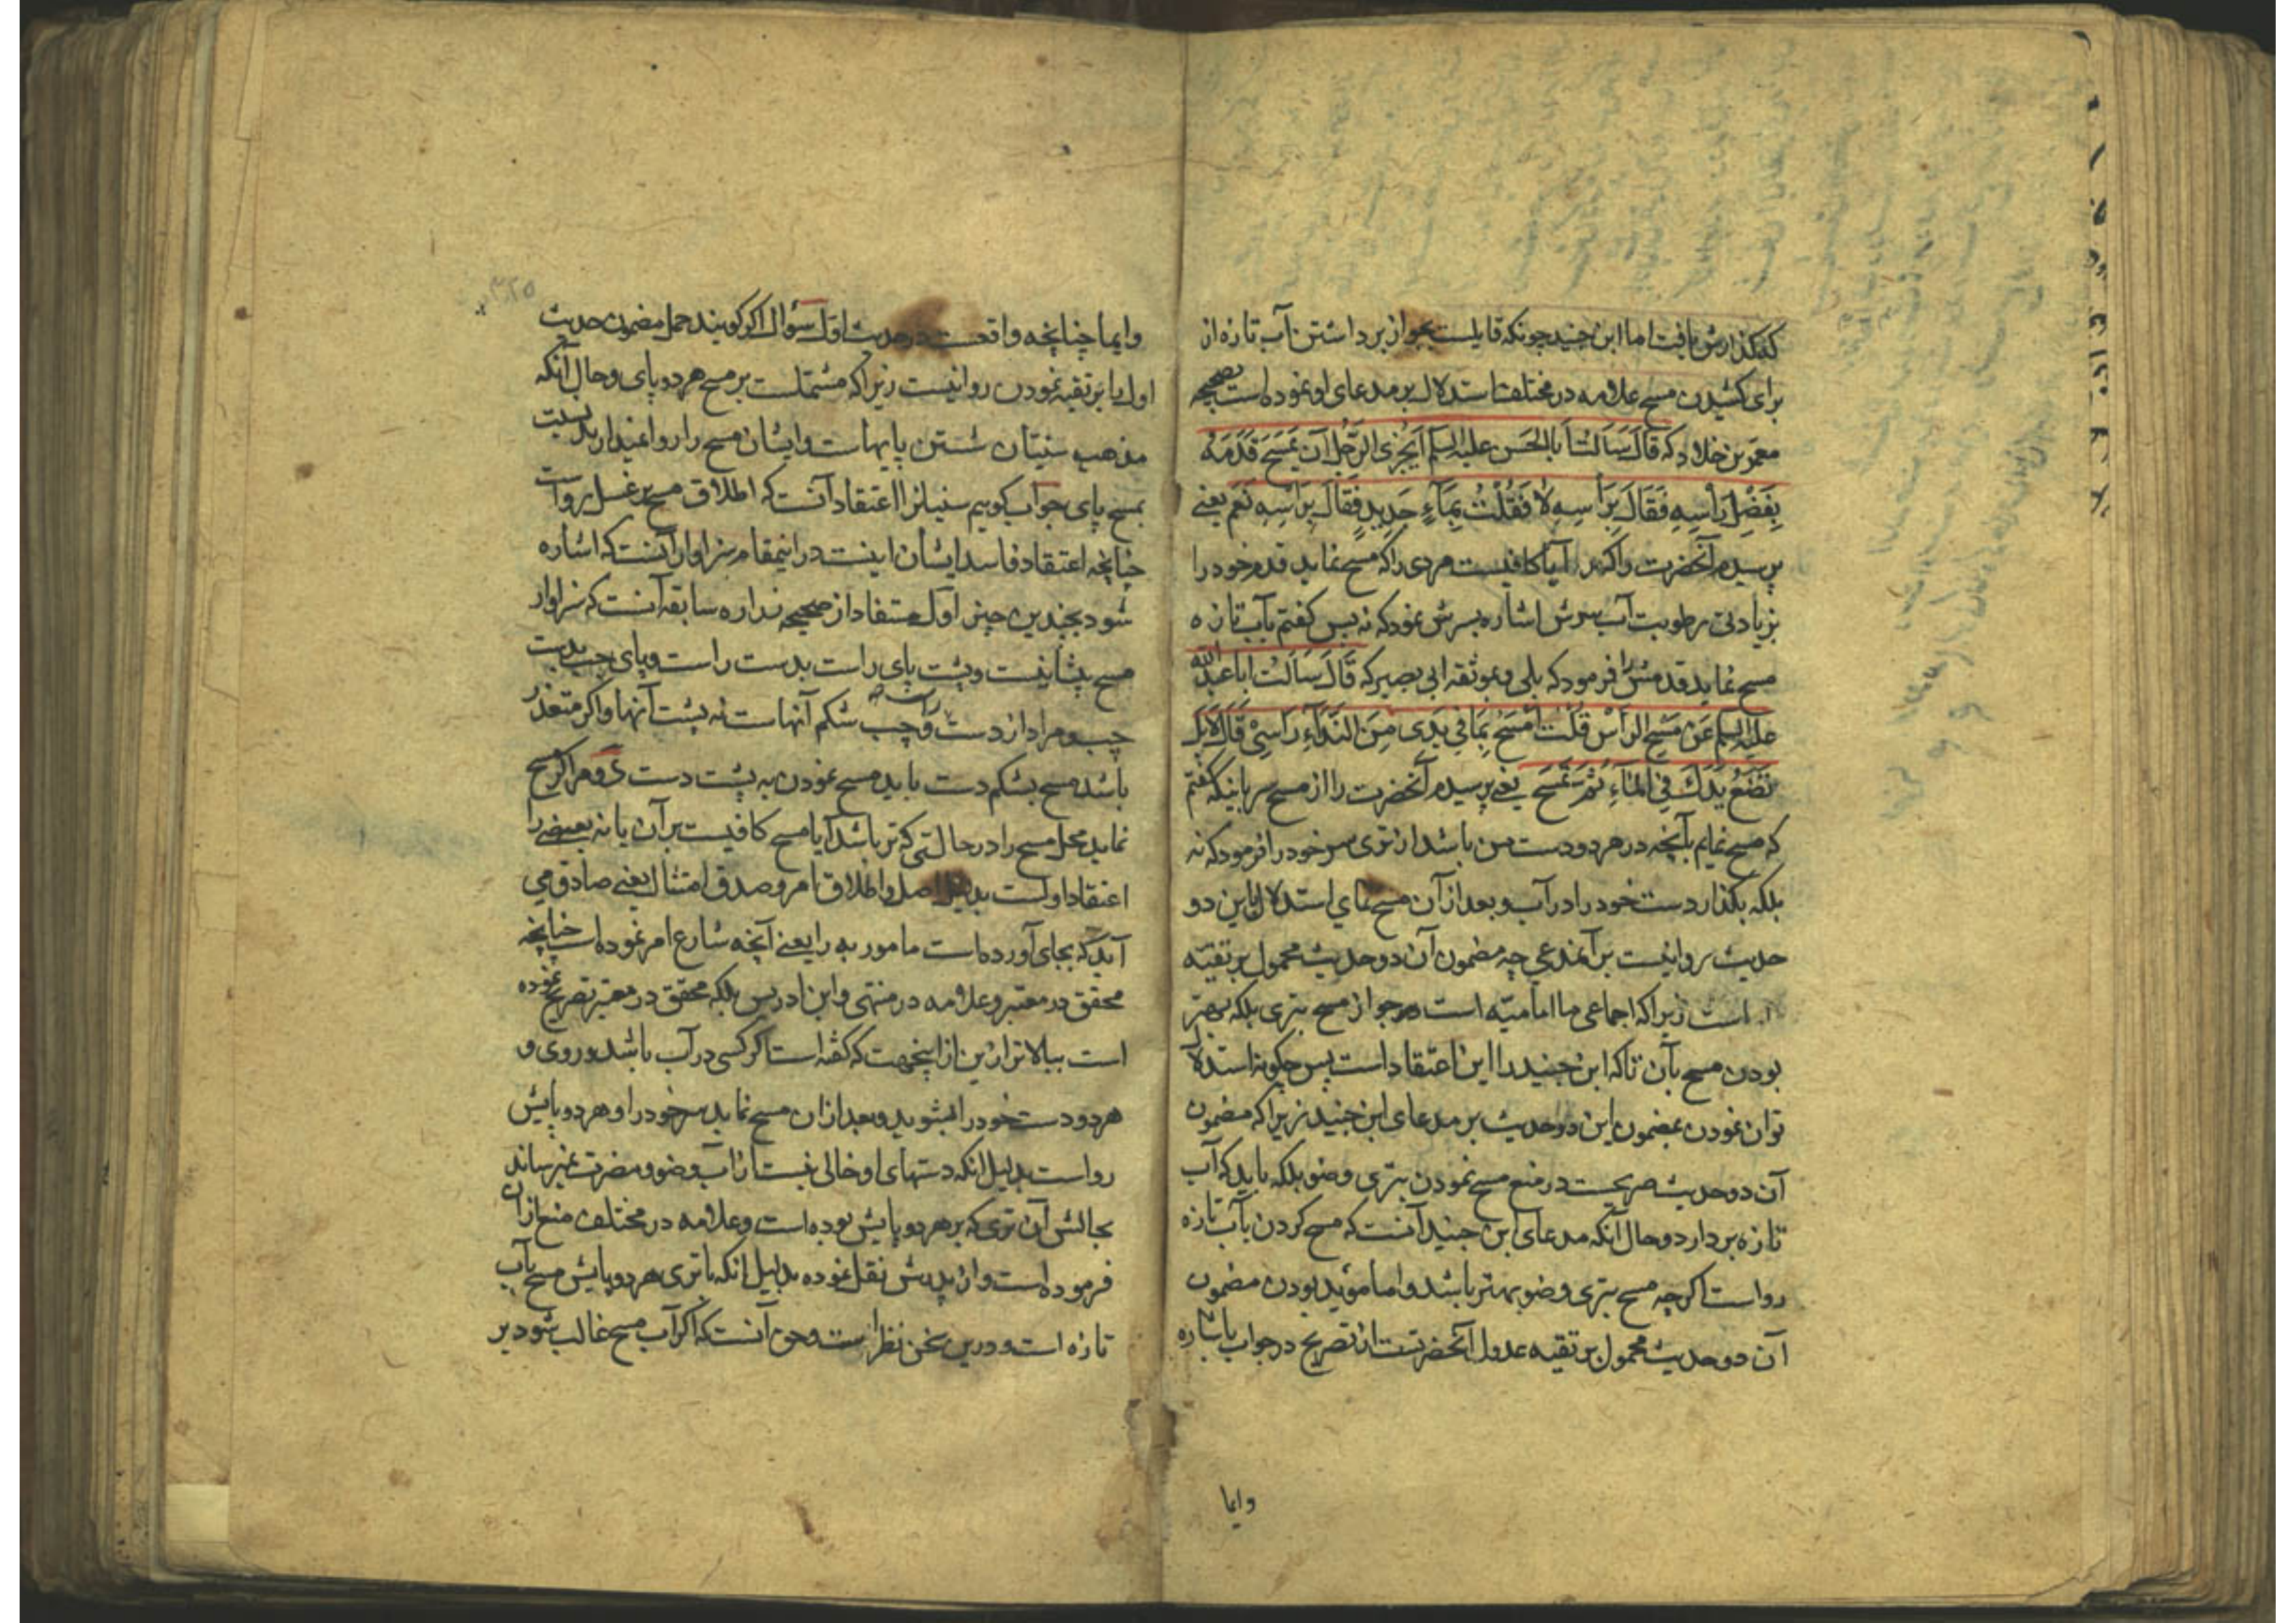 که گذارش یافت اما ابن جنید چونکه قایلست بجواز برداشتن آب تازه از
برای کشیدن مسح علامه در مختلف استدلال بر مدعای او نموده است بصحیحه
معمر بن خلاد که قَالَ سَاَلْتُ اَبَا الْحَسَن علیه السلم اَیُجْزِی الرَّجُلَ اَنْ یَمْسَحَ قَدَمَهُ
بِفَضْلِ رَأْسِهِ فَقَالَ بِرَأْسِهِ لَا فَقُلْتُ بِمَآءٍ جَدِیدٍ فَقَالَ بِرَاْسِهِ نَعَمْ یعنے
پرسیدم آنحضرت را که آیا کافیست مردی را که مسح نماید قدم خود را
بزیادتی رطوبت آب سرش اشاره بسرش نمود که نه پس گفتم بآب تازه
مسح نماید قدمش را فرمود که بلی و بموثقه ابی بصیر که قَالَ سَاَلْتُ ابا عبد الله
علیه السلم عَنْ مَسْحِ الرَأْسْ قُلْتُ اَمْسَحُ بِمَا فِی یَدِی مِنَ النَّدَآءِ رَاسِی قَالَ لَا بَلْ
تَضَعُ یَدَكَ فِی الْمَآءِ ثُمَّ تَمْسَحَ یعنے پرسیدم آنحضرت را از مسح سر باینکه گفتم
که مسح نمایم بآنچه در هر دو دست من باشد از تری سر خود را فرمود که نه
بلکه بگذار دست خود را در آب و بعد از آن مسح نمای استدلال باین دو
حدیث روا نیست بر آنمدعی چه مضمون آن دو حدیث محمول بر تقیّه
است زیرا که اجماعی ما امامیّه است در جواز مسح بتری بلکه بهتر
بودن مسح بآن تا که ابن جنید را این اعتقاد است پس چکونه استدلال
توان نمودن بمضمون این دو حدیث بر مدعای ابن جنید زیرا که مضمون
آن دو حدیث صریحست در منع مسح نمودن بتری وضو بلکه باید که آب
تازه بردارد و حال آنکه مدعای ابن جنید آنست که مسح کردن بآب تازه
رواست اکرچه مسح بتری وضو بهتر باشد و اما موید بودن مضمون
آن دو حدیث محمول بر تقیه عدول آنحضرتست از تصریح در جواب باشاره
وایما
وایما چنانچه واقعست در حدیث اول سؤال اکر کویند حمل مضمون حدیث
اول را بر تقیه نمودن روا نیست زیرا که مشتملست بر مسح هر دو پای و حال آنکه
مذهب سنیّان شستن پایهاست و ایشان مسح را روا نمیدارند
بمسح پای جواب کویم سنیانرا اعتقاد آنست که اطلاق مسح بر غسل رواست
چنانچه اعتقاد فاسد ایشان اینست در اینمقام سزاوار آنست که اشاره
شود بچندین چیز اول مستفاد از صحیحه زراره سابقه آنست که سزاوار
مسح پیشانیست و پشت پای راست بدست راست و پای چپ بدست
چپ و مراد از دست راست و چپ شکم آنهاست نه پشت آنها و اکر متعذر
باشد مسح بشکم دست باید مسح نمودن به پشت دست دوم اکر مسح
نماید محل مسح را در حالتی که تر باشد آیا مسح کافیست بر آن یا نه بعضے را
اعتقاد اولست بدلیل اصل و اطلاق امر و صدق امتثال یعنے صادق می
آید که بجای آورده است مامور به را یعنے آنچه شارع امر نموده است چنانچه
محقق در معتبر و علامه در منتهی و ابن ادریس بلکه محقق در معتبر تصریح نموده
است ببالاتر از این از اینجهت که کفته است اکر کسی در آب باشد و روی و
هر دو دست خود را بشوید و بعد از ان مسح نماید سر خود را و هر دو پایش
رواست بدلیل انکه دستهای او خالی نیست از آب وضو و مضرت نمیرساند
بحالش آن تری که بر هر دو پایش بوده است و علامه در مختلف منع از آن
فرموده است و از پدرش نقل نموده بدلیل انکه با تری هر دو پایش مسح بآب
تازه است و درین سخن نظر است و حق آنست که اکر آب مسح غالب شود بر